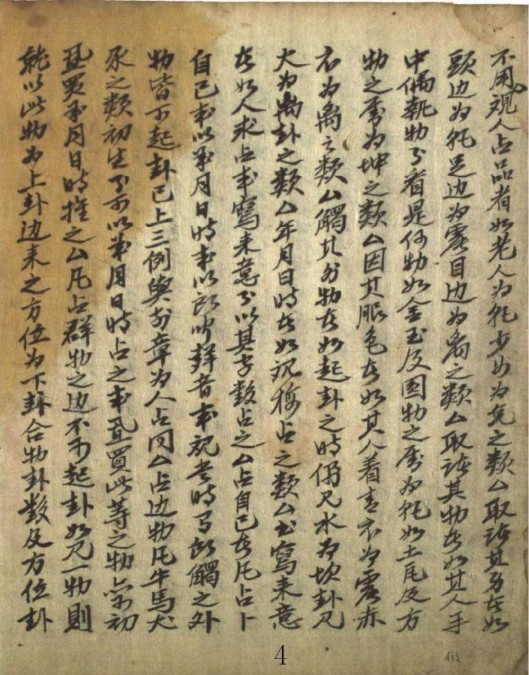 不用覌人占品者如老人为乾少女为兑之类厶取諸其身者如
頭边为乾足边为震目边为离之类厶取諸其物者如其人手
中偶執物可看是何物如金玉及圎物之属为乾如土瓦及方
物之属为坤之类厶因其服色者如其人着青衣为震赤
衣为离之类厶觸其外物者如起卦之時偶見水为坎卦見
火为离卦之类厶年月日時者如覌梅占之类厶书寫来意
者如人求占或寫来意可以其字数占之厶占自己者凡占卜
自己或以年月日時或以所聞聲音或覌當時有所觸之外
物皆可起卦已上三例與前章为人占同厶占边物凡牛馬犬
豕之类初生可以年月日時占之或置買此等之物亦可初
置買年月日時推之厶凡占群物之边不可起卦如見一物則
就以此物为上卦边来之方位为下卦合物卦数及方位卦
4